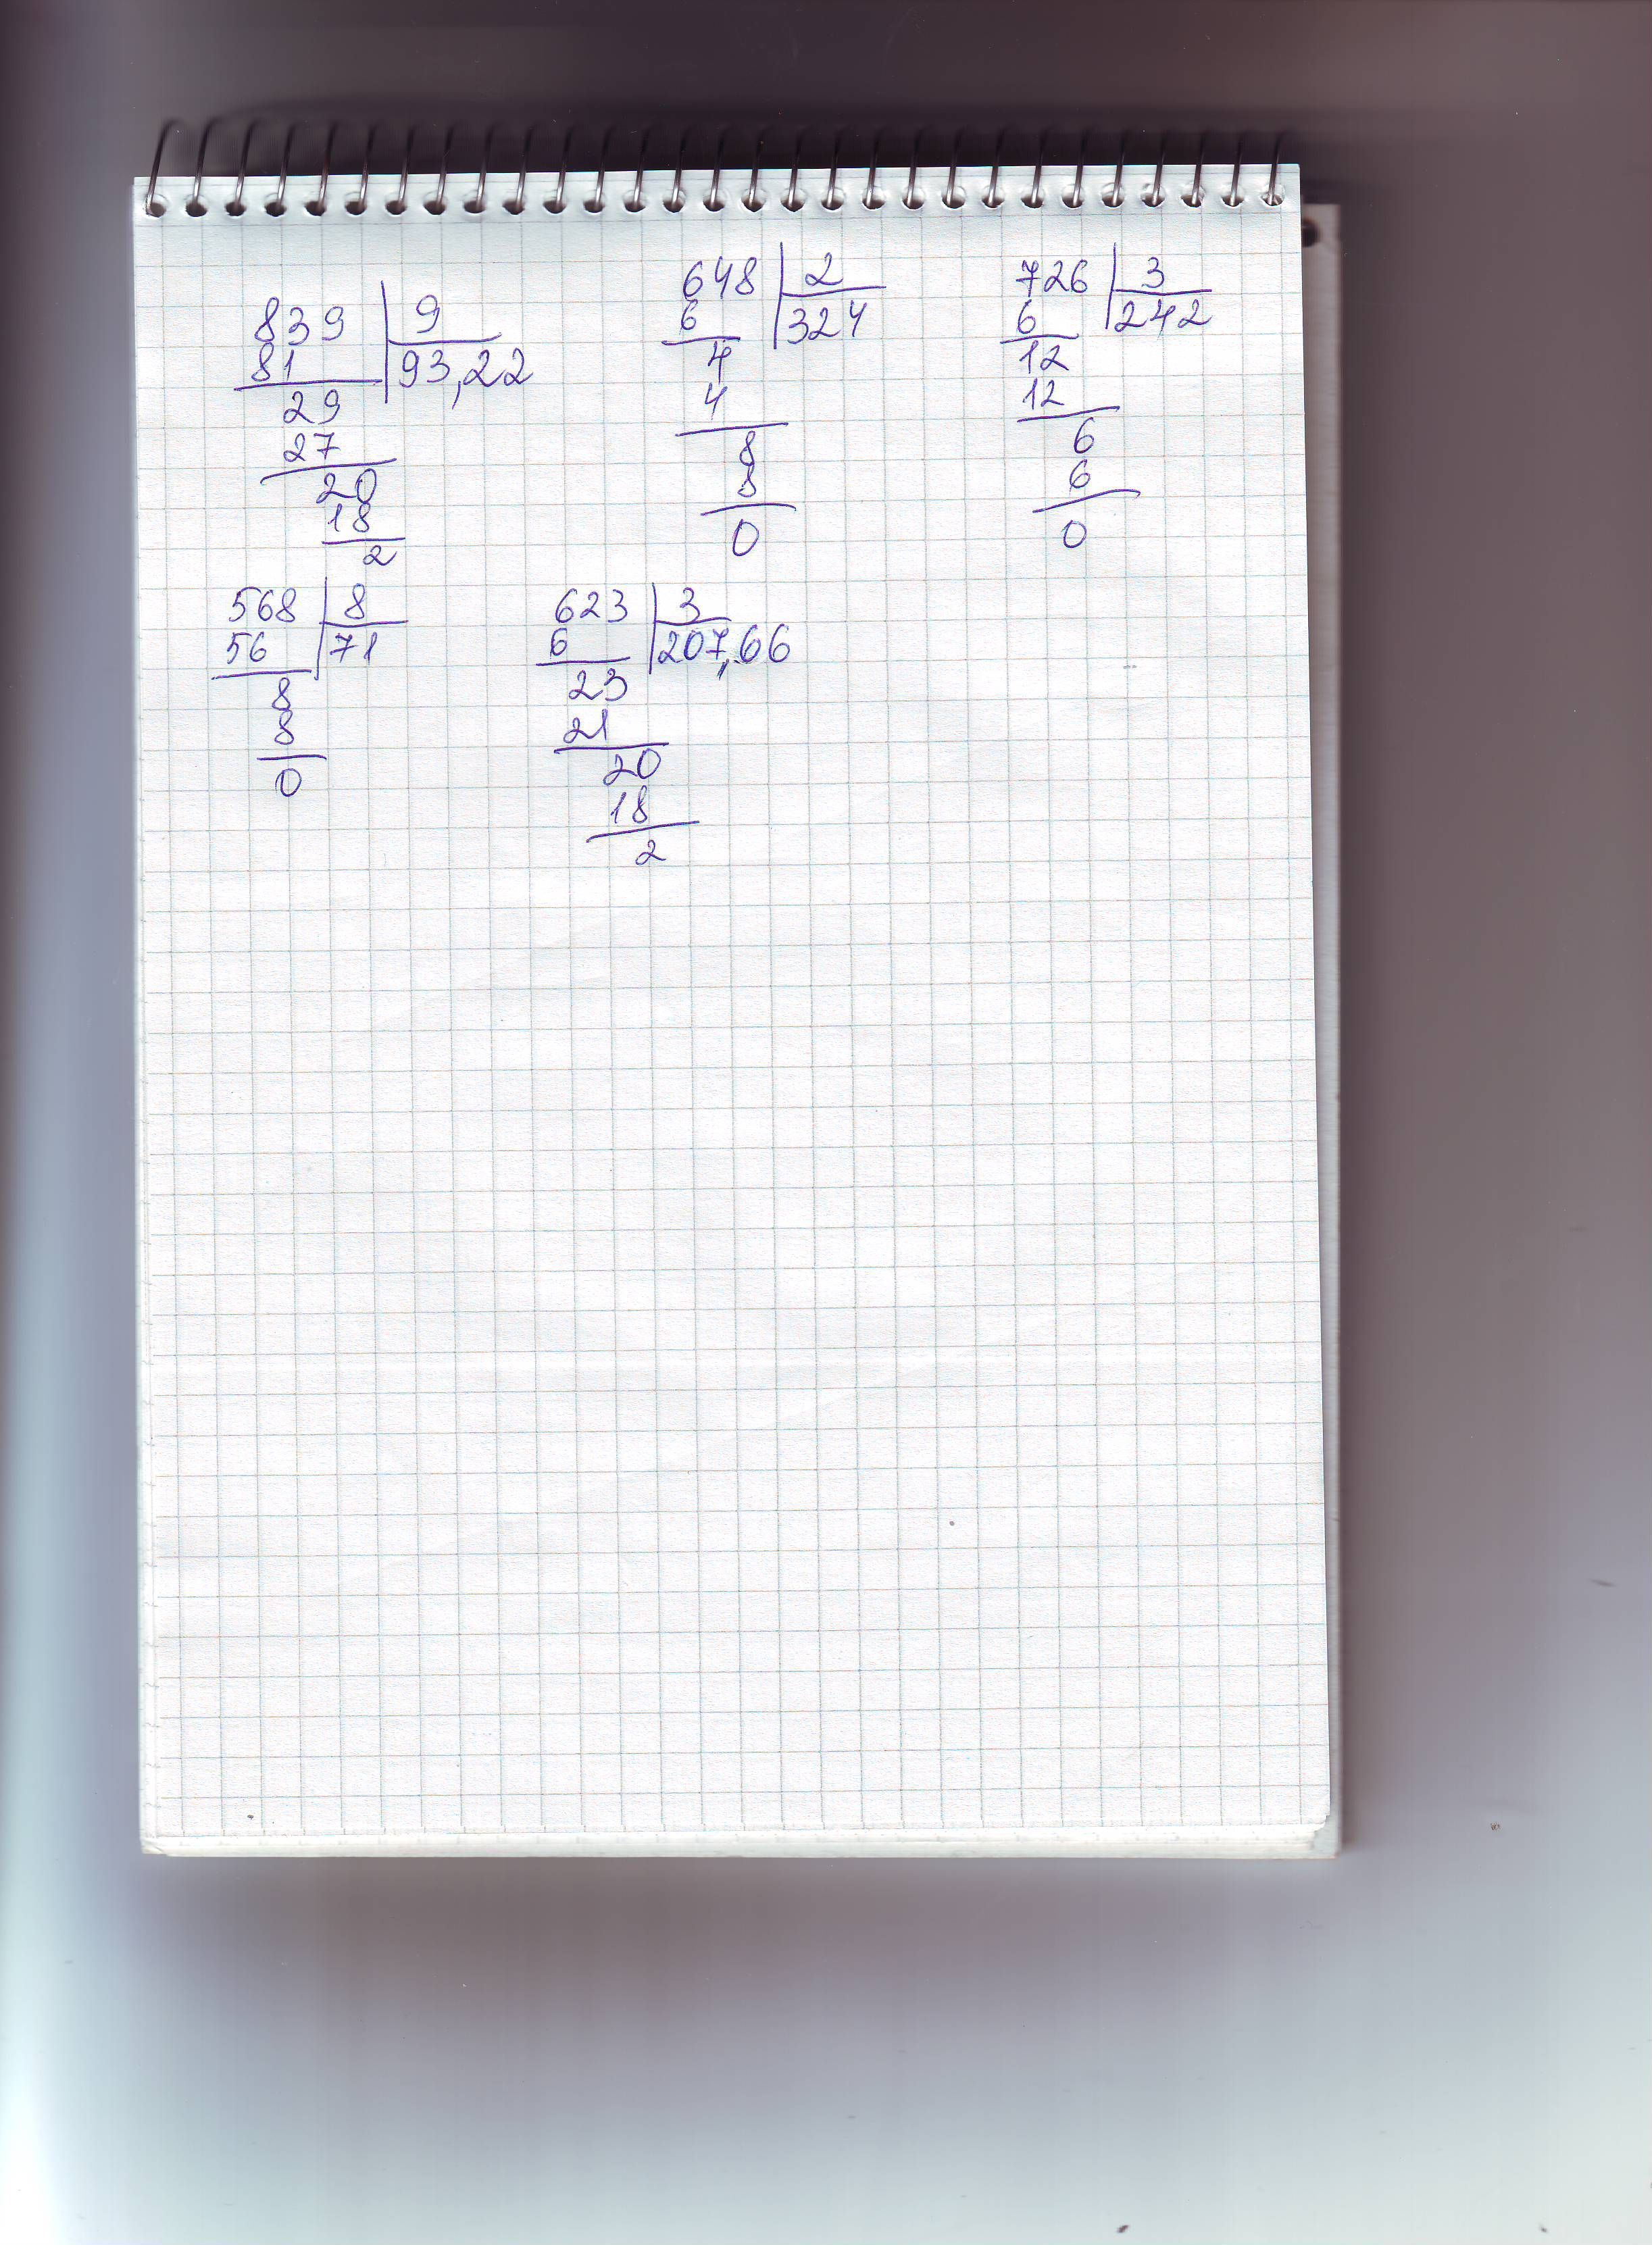 839 9
81 93,22
29
27
20
18
2
648 2
6 324
4
4
8
8
0
726 3
6 242
12
12
6
6
0
568 8
56 71
8
8
0
623 3
6 207,66
23
21
20
18
2